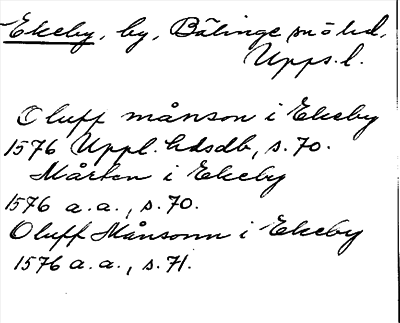 Ekeby, by, Bälinge sn o hd,
Upps. l.
Oluff månson i Ekeby
1576 Uppl. hdsdb, s. 70.
Mårten i Ekeby
1576 a. a., s. 70.
Oluff Månsonn i Ekeby
1576 a. a., s. 71.